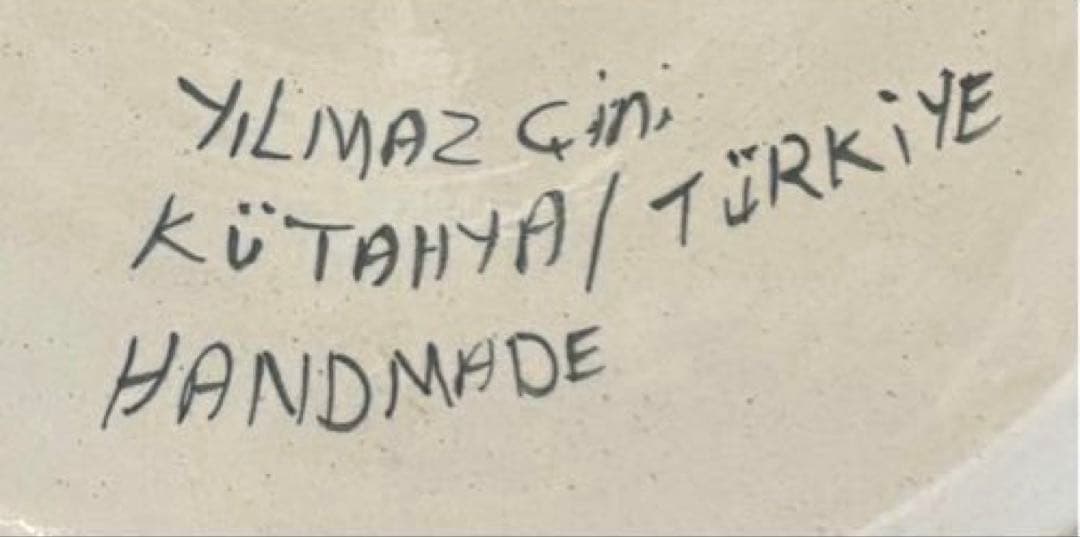 YILMAZ Çini
KÜTAHYA / TÜRKİYE
HANDMADE